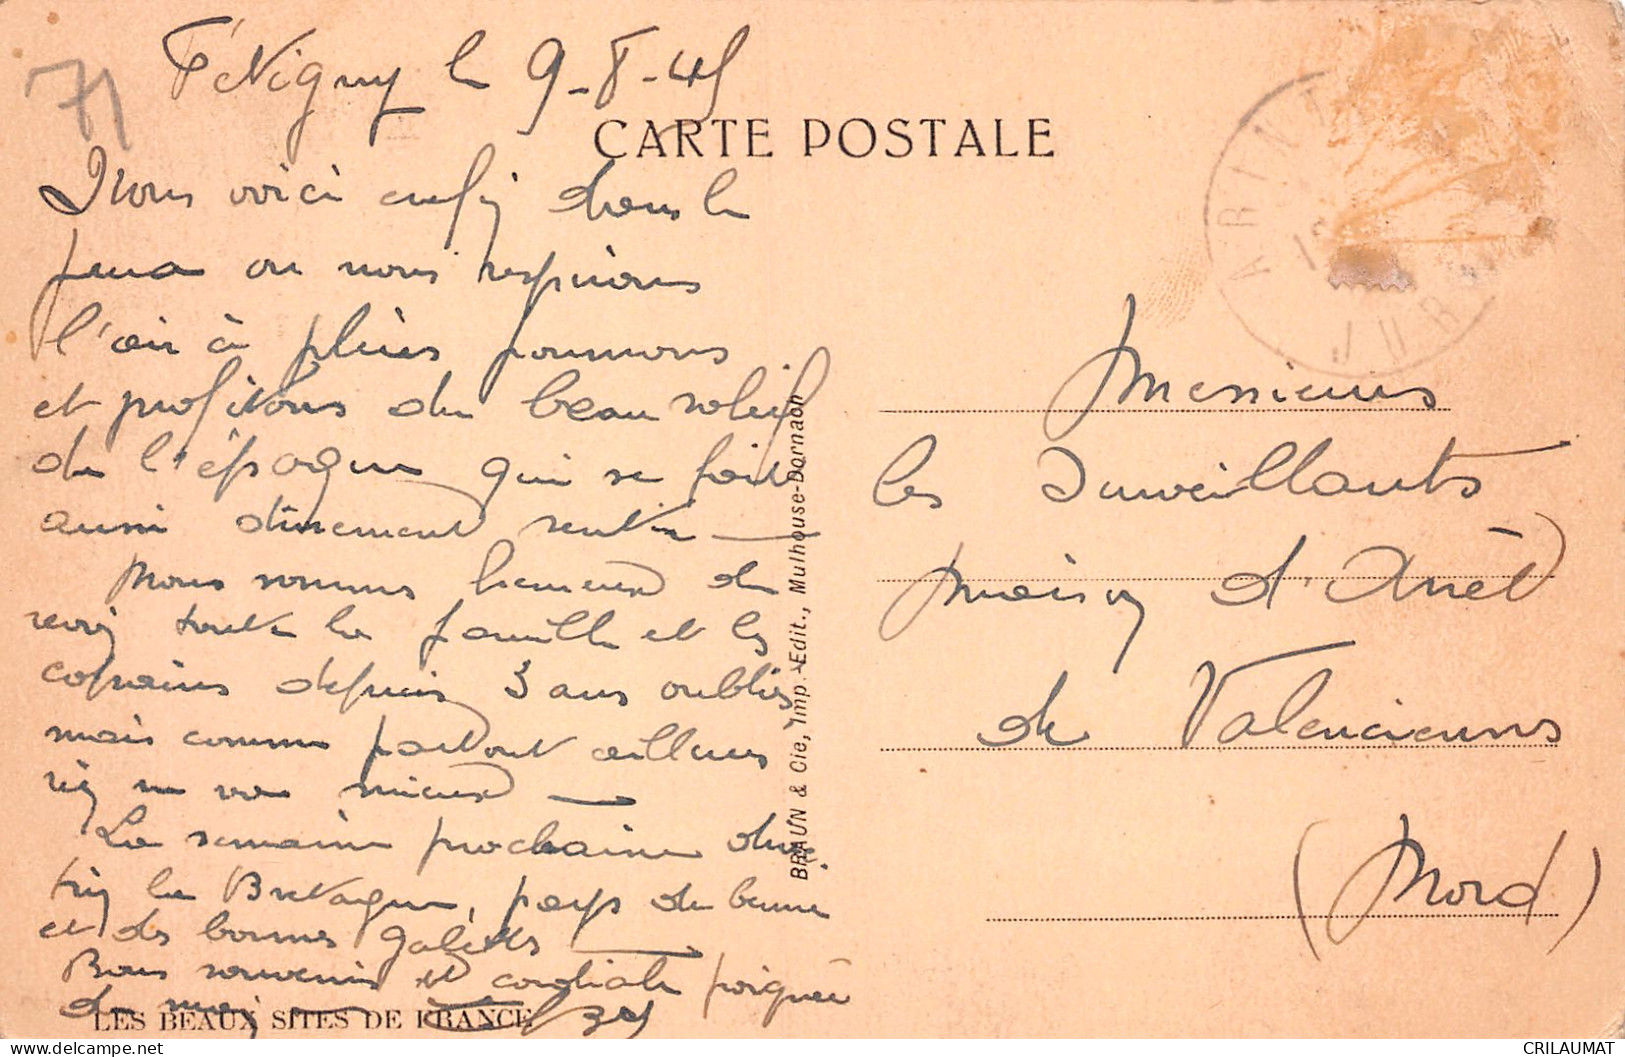 71
Fétigny le 9-8-45
CARTE POSTALE
ARINT
JURA
Nous voici enfin dans le
Jura où nous respirons
l'air à pleins poumons
et profitons du beau soleil
de l'époque qui se fait
aussi dûrement sentir
Nous sommes heureux de
revoir toute la famille et les
copains depuis 3 ans oubliés
mais comme partout ailleurs
rien ne va mieux
La semaine prochaine
la Bretagne, pays du beurre
et des bonnes galettes
Bons souvenirs et cordiale poignée
de main
LES BEAUX SITES DE FRANCE
BRAUN & Cie, Imp.-Edit., Mulhouse-Dornach
Messieurs
les Surveillants
Maison d'Arrêt
de Valenciennes
(Nord)
CRILAUMAT